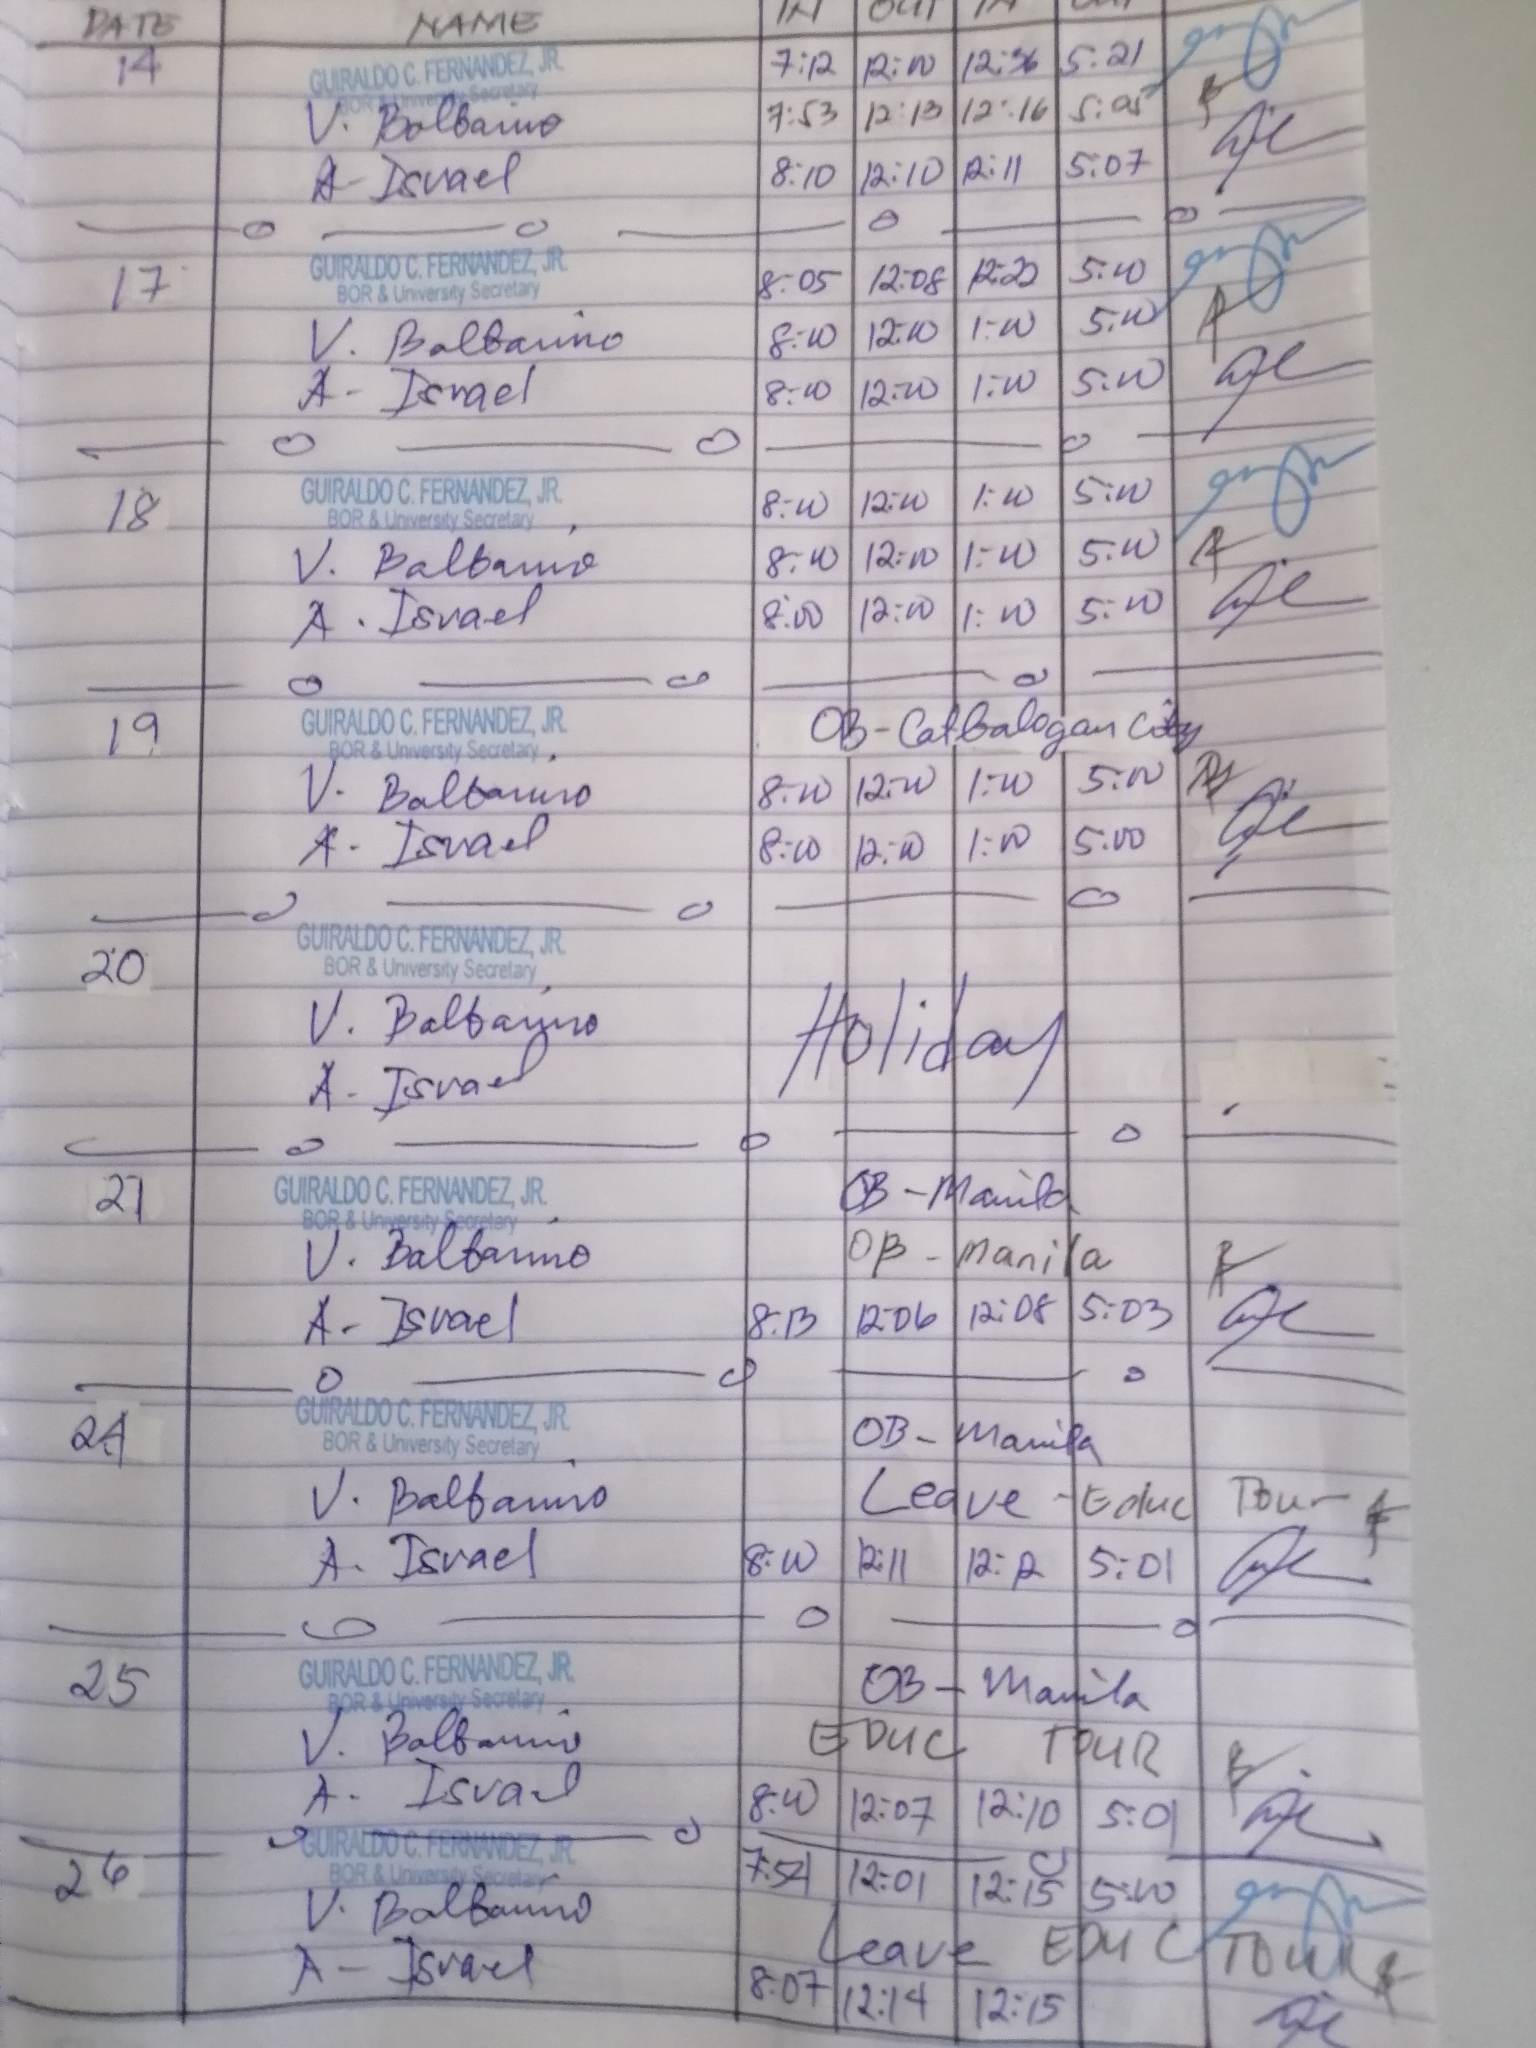 DATE NAME IN OUT IN OUT
14 GUIRALDO C. FERNANDEZ, JR. 7:12 12:00 12:36 5:21
BOR & University Secretary
V. Balbarino 7:53 12:13 12:16 5:05
A- Israel 8:10 12:10 12:11 5:07
17 GUIRALDO C. FERNANDEZ, JR. 8:05 12:08 12:20 5:00
BOR & University Secretary
V. Balbarino 8:00 12:00 1:00 5:00
A- Israel 8:00 12:00 1:00 5:00
18 GUIRALDO C. FERNANDEZ, JR. 8:00 12:00 1:00 5:00
BOR & University Secretary
V. Balbarino 8:00 12:00 1:00 5:00
A. Israel 8:00 12:00 1:00 5:00
19 GUIRALDO C. FERNANDEZ, JR. OB-Catbalogan City
BOR & University Secretary
V. Balbarino 8:00 12:00 1:00 5:00
A. Israel 8:00 12:00 1:00 5:00
20 GUIRALDO C. FERNANDEZ, JR.
BOR & University Secretary
V. Balbarino Holiday
A- Israel
21 GUIRALDO C. FERNANDEZ, JR. OB-Manila
BOR & University Secretary
V. Balbarino OB-Manila
A- Israel 8:13 12:06 12:08 5:03
24 GUIRALDO C. FERNANDEZ, JR. OB-Manila
BOR & University Secretary
V. Balbarino Leave-Educ Tour
A. Israel 8:00 12:11 12:12 5:01
25 GUIRALDO C. FERNANDEZ, JR. OB-Manila
BOR & University Secretary
V. Balbarino EDUC TOUR
A- Israel 8:00 12:07 12:10 5:01
26 GUIRALDO C. FERNANDEZ, JR. 7:54 12:01 12:15 5:00
BOR & University Secretary
V. Balbarino Leave EDUC TOUR
A- Israel 8:07 12:14 12:15